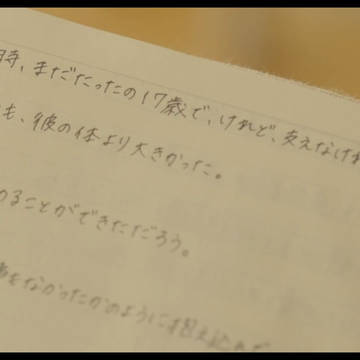 時、まだたったの17歳で、けれど、支えなけれ
も、彼の体より大きかった。
めることができただろう。
をなかったかのように抱え込んで